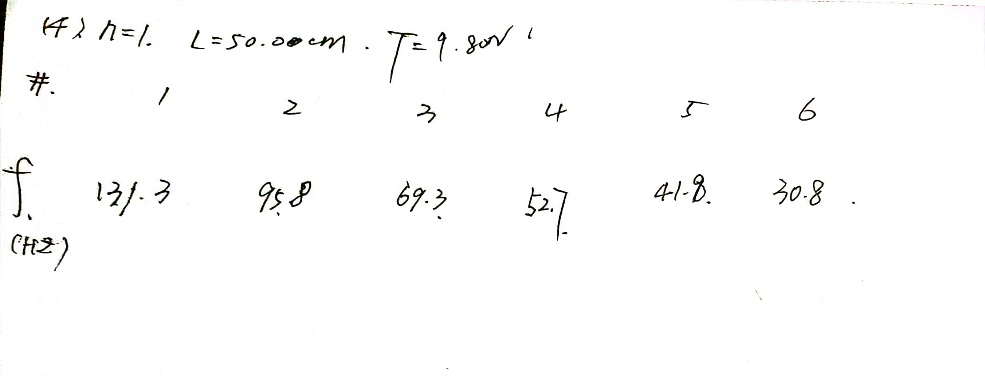 (4) n=1. L=50.00cm. T=9.80N
#. 1 2 3 4 5 6
f. 131.3 95.8 69.3 52.7 41.8. 30.8.
(HZ)